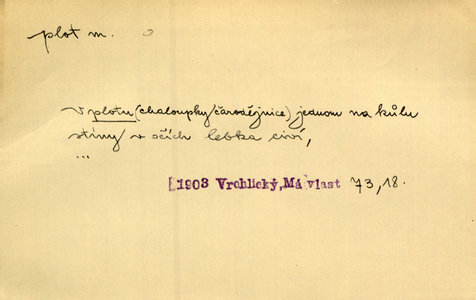 plot m.
v plotu (chaloupky/čarodějnice) jednom na kůlu
stíny/v očích lebka civí,
...
[1903 Vrchlický, Má vlast 73, 18.